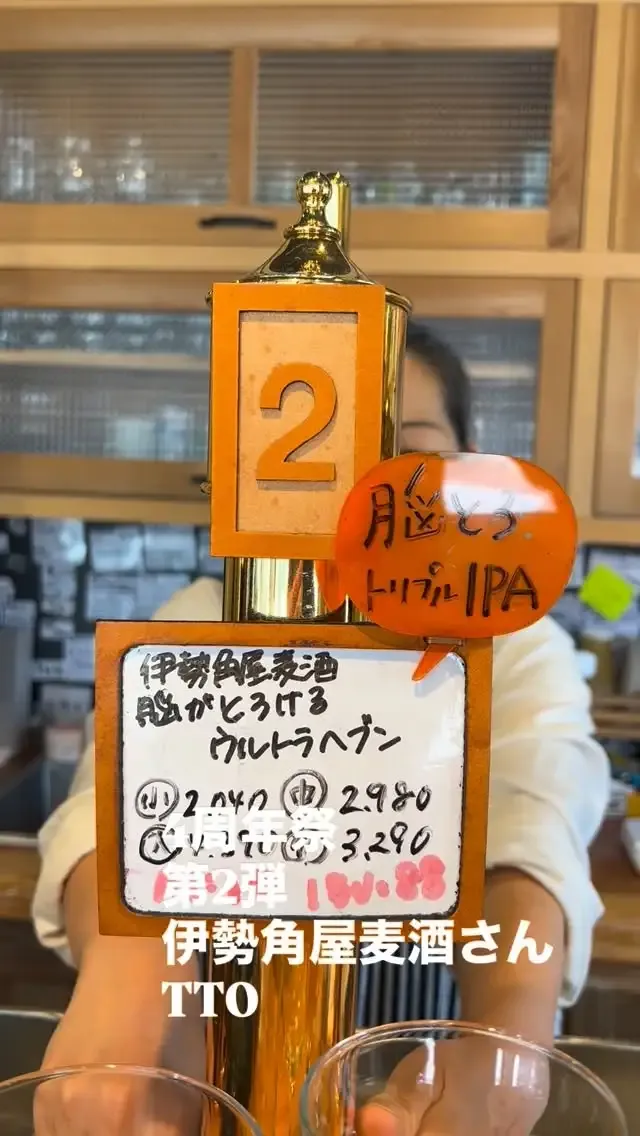 2
脳とろ
トリプルIPA
伊勢角屋麦酒
脳がとろける
ウルトラヘブン
小 2,040 中 2,980
大 3,290
IBU.85
4周年祭
第2弾
伊勢角屋麦酒さん
TTO